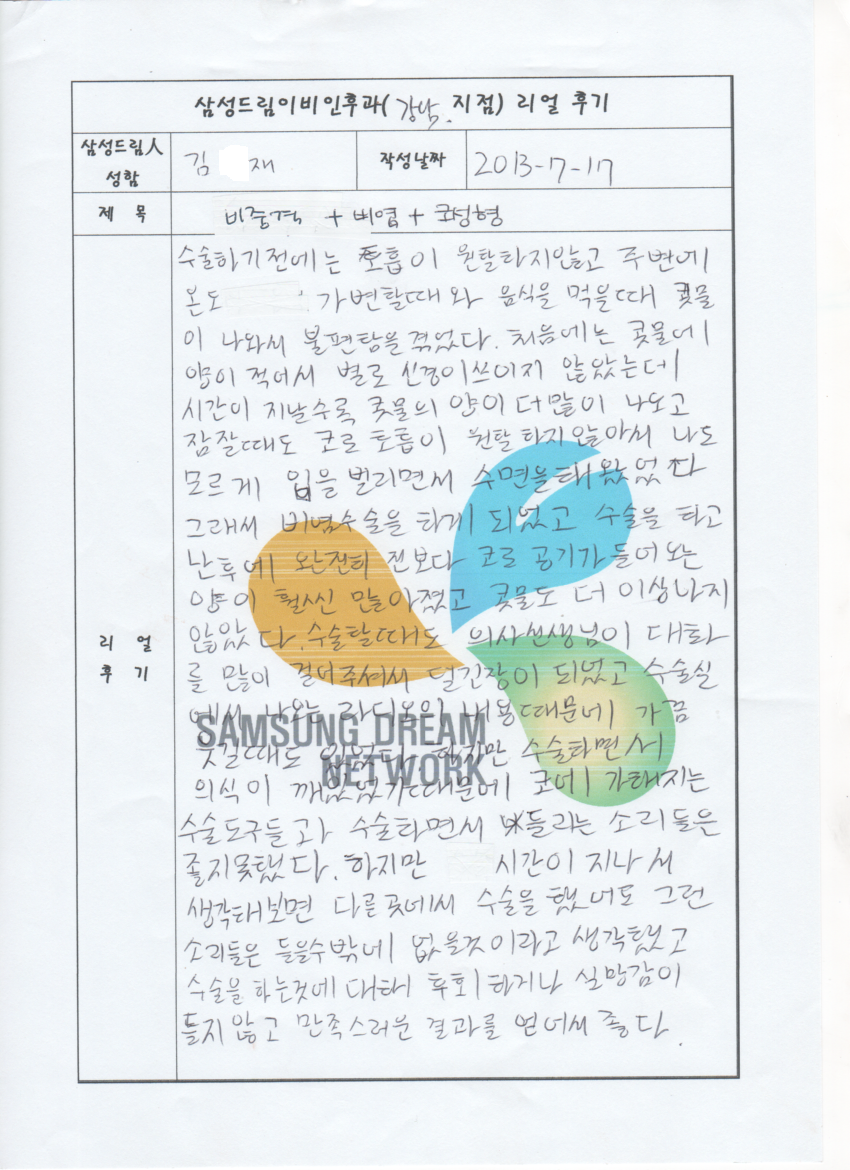 삼성드림이비인후과(강남.지점) 리얼 후기
삼성드림人 성함
김 재
작성날짜
2013-7-17
제 목
비중격 + 비염 + 코성형
리 얼 후 기
수술하기전에는 호흡이 원할하지않고 주변에
온도 가변할때와 음식을 먹을때 콧물
이 나와서 불편함을 겪었다. 처음에는 콧물에
양이 적어서 별로 신경이쓰이지 않았는데
시간이 지날수록 콧물의 양이 더많이 나오고
잠잘때도 코로 호흡이 원할하지않아서 나도
모르게 입을 벌리면서 수면을해왔었다
그래서 비염수술을 하게 되었고 수술을 하고
난후에 완전히 전보다 코로 공기가 들어오는
양이 훨씬 많아졌고 콧물도 더 이상나지
않았다. 수술할때도 의사선생님이 대화
를 많이 걸어주셔서 덜긴장이 되었고 수술실
에서 나오는 라디오의 내용때문에 가끔
웃길때도 있었다. 하지만 수술하면서
의식이 깨있었기때문에 코에 가해지는
수술도구들과 수술하면서 들리는 소리들은
좋지못했다. 하지만 시간이 지나서
생각해보면 다른곳에서 수술을 했어도 그런
소리들은 들을수밖에 없을것이라고 생각했고
수술을 하는것에 대해 후회하거나 실망감이
들지않고 만족스러운 결과를 얻어서 좋다.
SAMSUNG DREAM
NETWORK